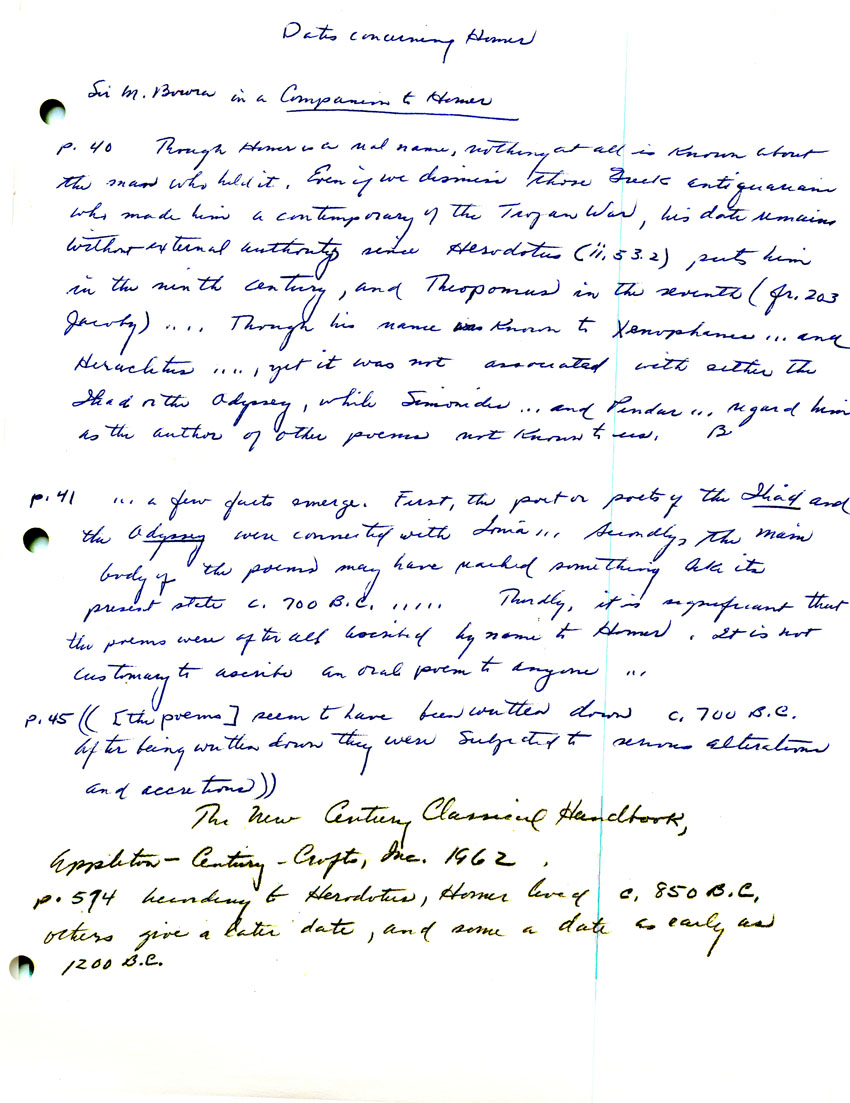 Dates concerning Homer
Sir M. Bowra in a Companion to Homer
p. 40 Though Homer is a real name, nothing at all is known about
the man who held it. Even if we dismiss those Greek antiquarians
who made him a contemporary of the Trojan War, his date remains
without external authority since Herodotus (ii, 53.2), puts him
in the ninth century, and Theopompus in the seventh (fr. 203
Jacoby) .... Though his name was known to Xenophanes ... and
Heraclitus ...., yet it was not associated with either the
Iliad or the Odyssey, while Simonides ... and Pindar ... regard him
as the author of other poems not known to us. B
p. 41 ... a few facts emerge. First, the poet or poets of the Iliad and
the Odyssey were connected with Ionia ... Secondly, the main
body of the poems may have reached something like its
present state c. 700 B.C. ..... Thirdly, it is significant that
the poems were after all ascribed by name to Homer. It is not
customary to ascribe an oral poem to anyone ...
p. 45 (( [the poems] seem to have been written down c. 700 B.C.
After being written down they were subjected to serious alterations
and accretions))
The New Century Classical Handbook,
Appleton - Century - Crofts, Inc. 1962.
p. 574 According to Herodotus, Homer lived c. 850 B.C,
others give a later date, and some a date as early as
1200 B.C.